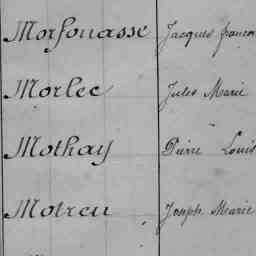 Morfouasse Jacques françois
Morlec Jules Marie
Mothay Pierre Louis
Motreu Joseph Marie